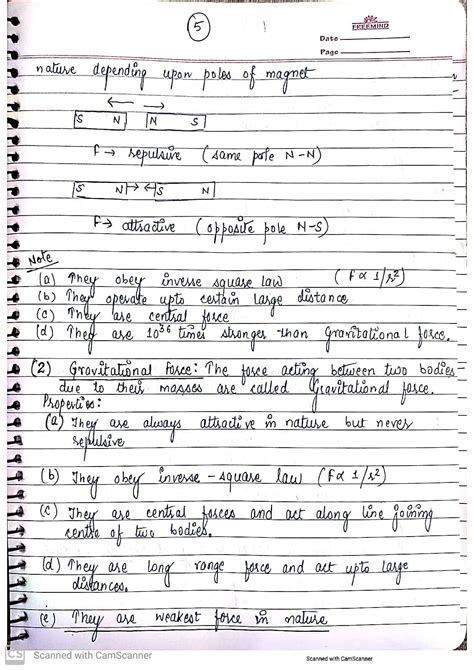 5
FREEMIND
Date
Page
nature depending upon poles of magnet
S N N S
F → repulsive (same pole N-N)
S N S N
F → attractive (opposite pole N-S)
Note
(a) They obey inverse square law (F ∝ 1/r²)
(b) They operate upto certain large distance
(c) They are central force
(d) They are 10³⁶ times stronger than Gravitational force.
(2) Gravitational Force: The force acting between two bodies
due to their masses are called Gravitational force.
Properties:
(a) They are always attractive in nature but never
repulsive
(b) They obey inverse-square law (F ∝ 1/r²)
(c) They are central forces and act along line joining
centre of two bodies.
(d) They are long range force and act upto large
distances.
(e) They are weakest force in nature
CS Scanned with CamScanner
Scanned with CamScanner